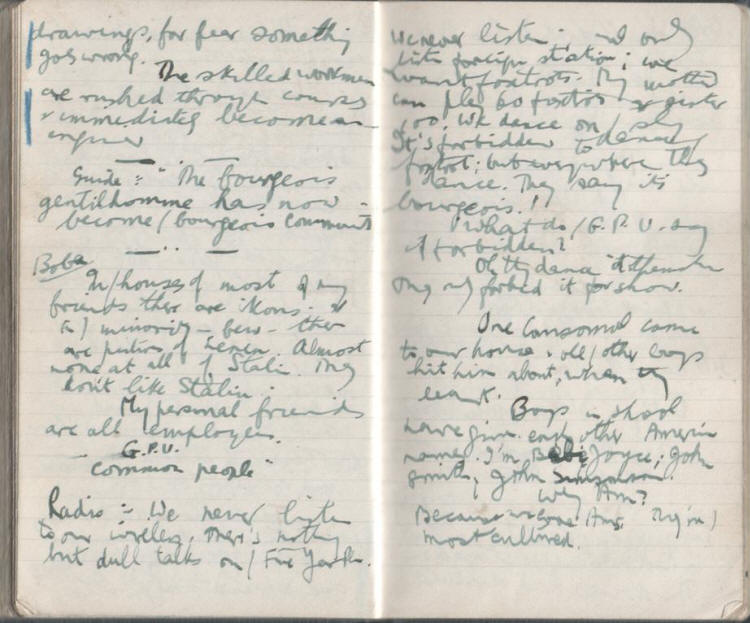 drawings, for fear something
goes wrong.
The skilled workmen
are rushed through courses
& immediately become an
engineer
Guide :- "The bourgeois
gentilhomme has now
become / bourgeois communist
Boba
In / houses of most of my
friends there are ikons.
minority - few - there
are pictures of Lenin. Almost
none at all of Stalin. They
don't like Stalin.
My personal friends
are all employees.
G.P.U.
common people"
Radio :- We never listen
to our wireless, there's nothing
but dull talks on / Five Year Pl.
We never listen. and only
foreign station; we
want foxtrots. My mother
can play 60 foxtrots & sister
too. We dance on / sly
It's forbidden to dance /
foxtrot; but everywhere they
dance. They say it's
bourgeois.!
What do / G.P.U. say
if forbidden?
Oh they dance it themselves
only forbid it for show.
One Consomol came
to our house & all / other boys
hit him about, when
Boys in school
have given each other American
names. I'm Bobi Joyce; John
Smith, John Simpson.
Why Am?
Because we love Am.
most cultured.